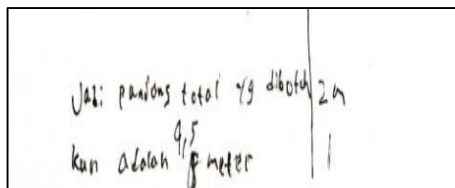 Jadi panjang total yg dibutuh 2m
kan adalah 4,5 meter 1